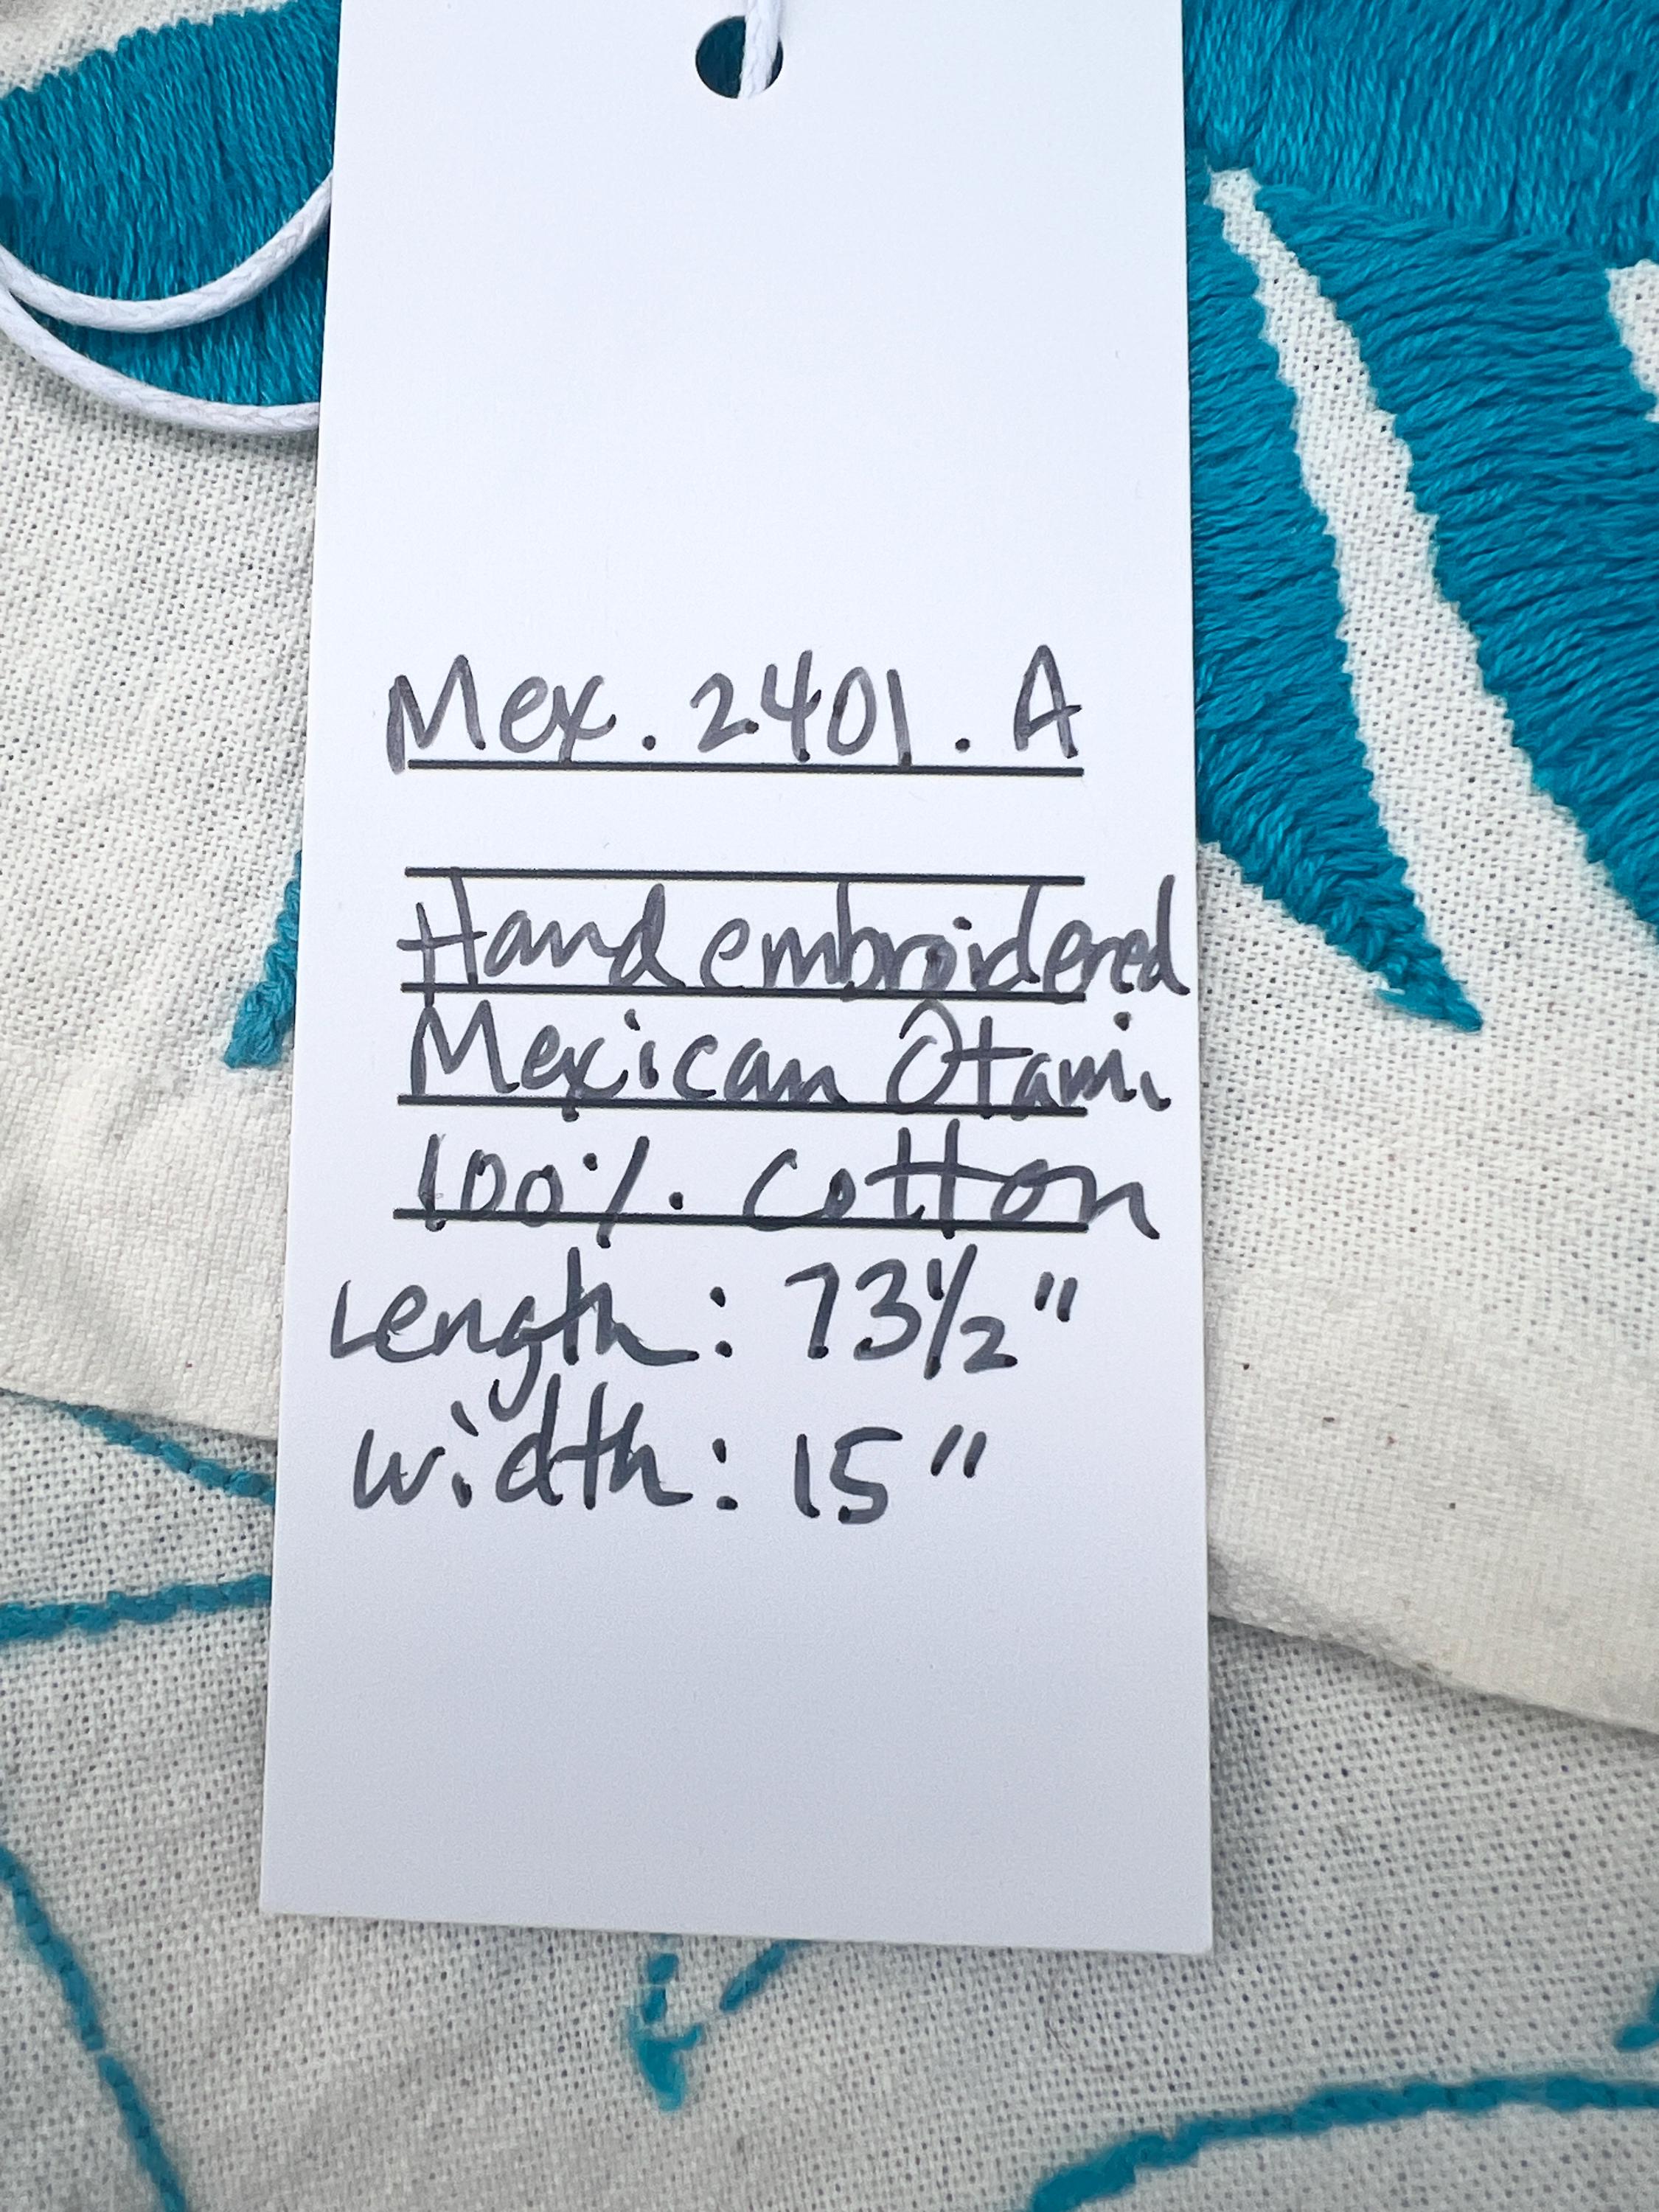 Mex. 2401. A
Hand embroidered
Mexican Otami
100%. cotton
Length: 73½"
Width: 15"